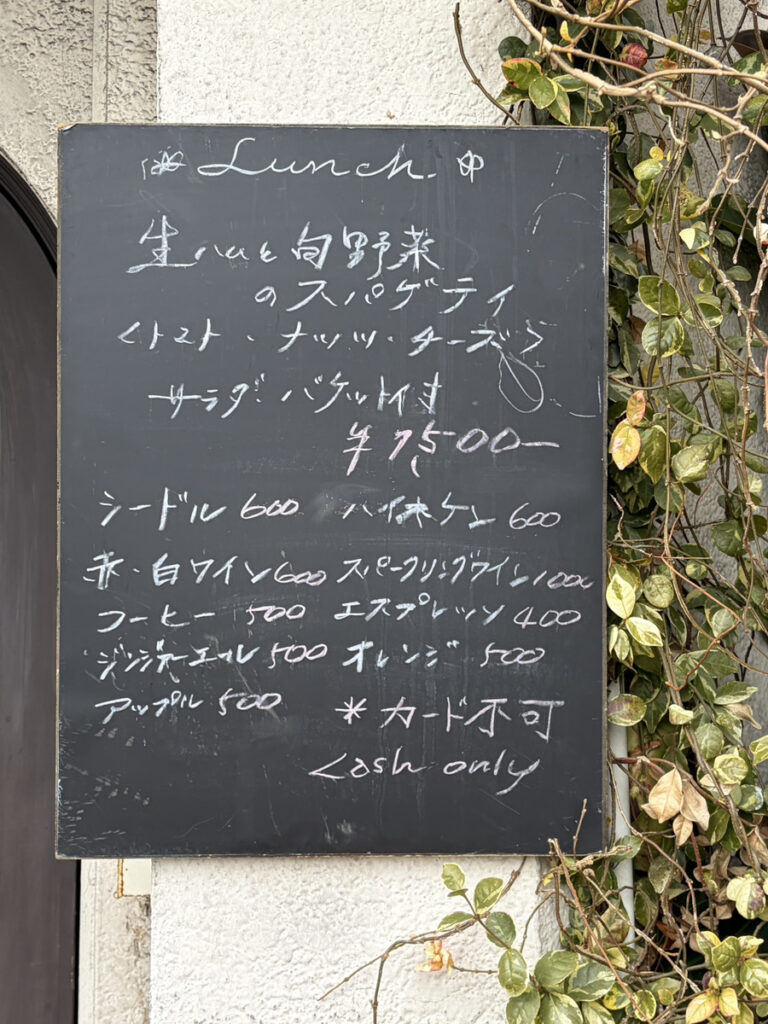 Lunch.
生ハムと旬野菜
のスパゲティ
<トマト・ナッツ・チーズ>
サラダ・バケット付
¥1,500-
シードル 600 ハイネケン 600
赤・白ワイン 600 スパークリングワイン 1000
コーヒー 500 エスプレッソ 400
ジンジャーエール 500 オレンジ 500
アップル 500
*カード不可
Cash only